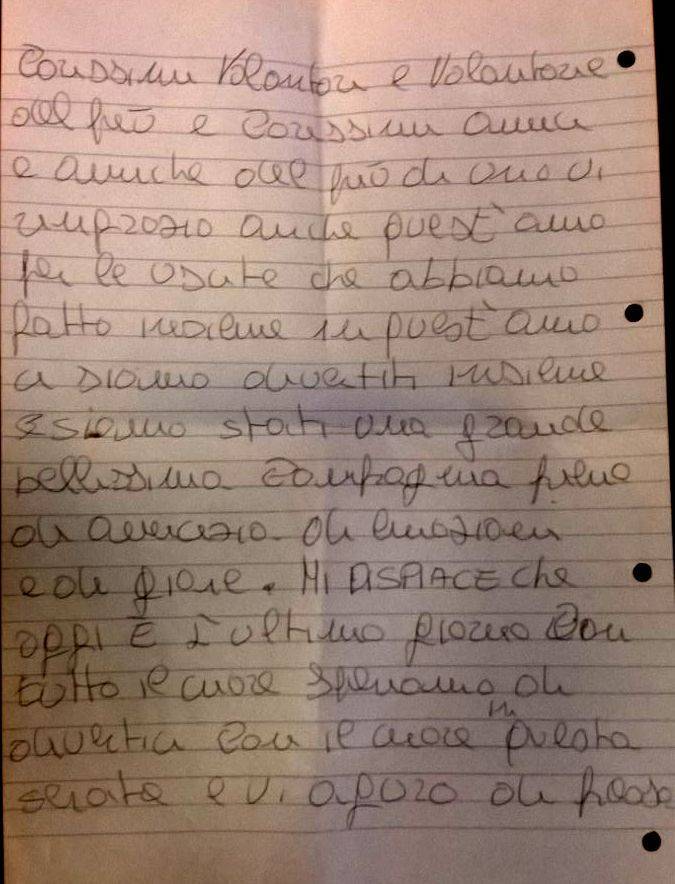 Carissimi Volontari e Volontarie
del prò e Carissimi amici
e amiche del prò di ono vi
ringrazio anche quest'anno
per le uscite che abbiamo
fatto insieme in quest'anno
ci siamo divertiti insieme
e siamo stati una grande
bellissima compagnia piena
di amicizia di emozioni
e di gioie. MI DISPIACE che
oggi È L'ultimo giorno Con
tutto il cuore Speriamo di
divertirci con il cuore in questa
serata e vi auguro di